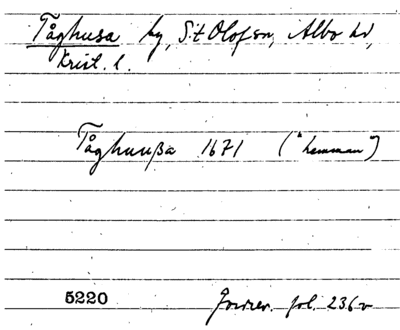 Tåghusa by, S:t Olof sn, Albo hd,
Krist. l.
Tåghuußa 1671 ("hemman")
5220 Jordrev. fol. 236v